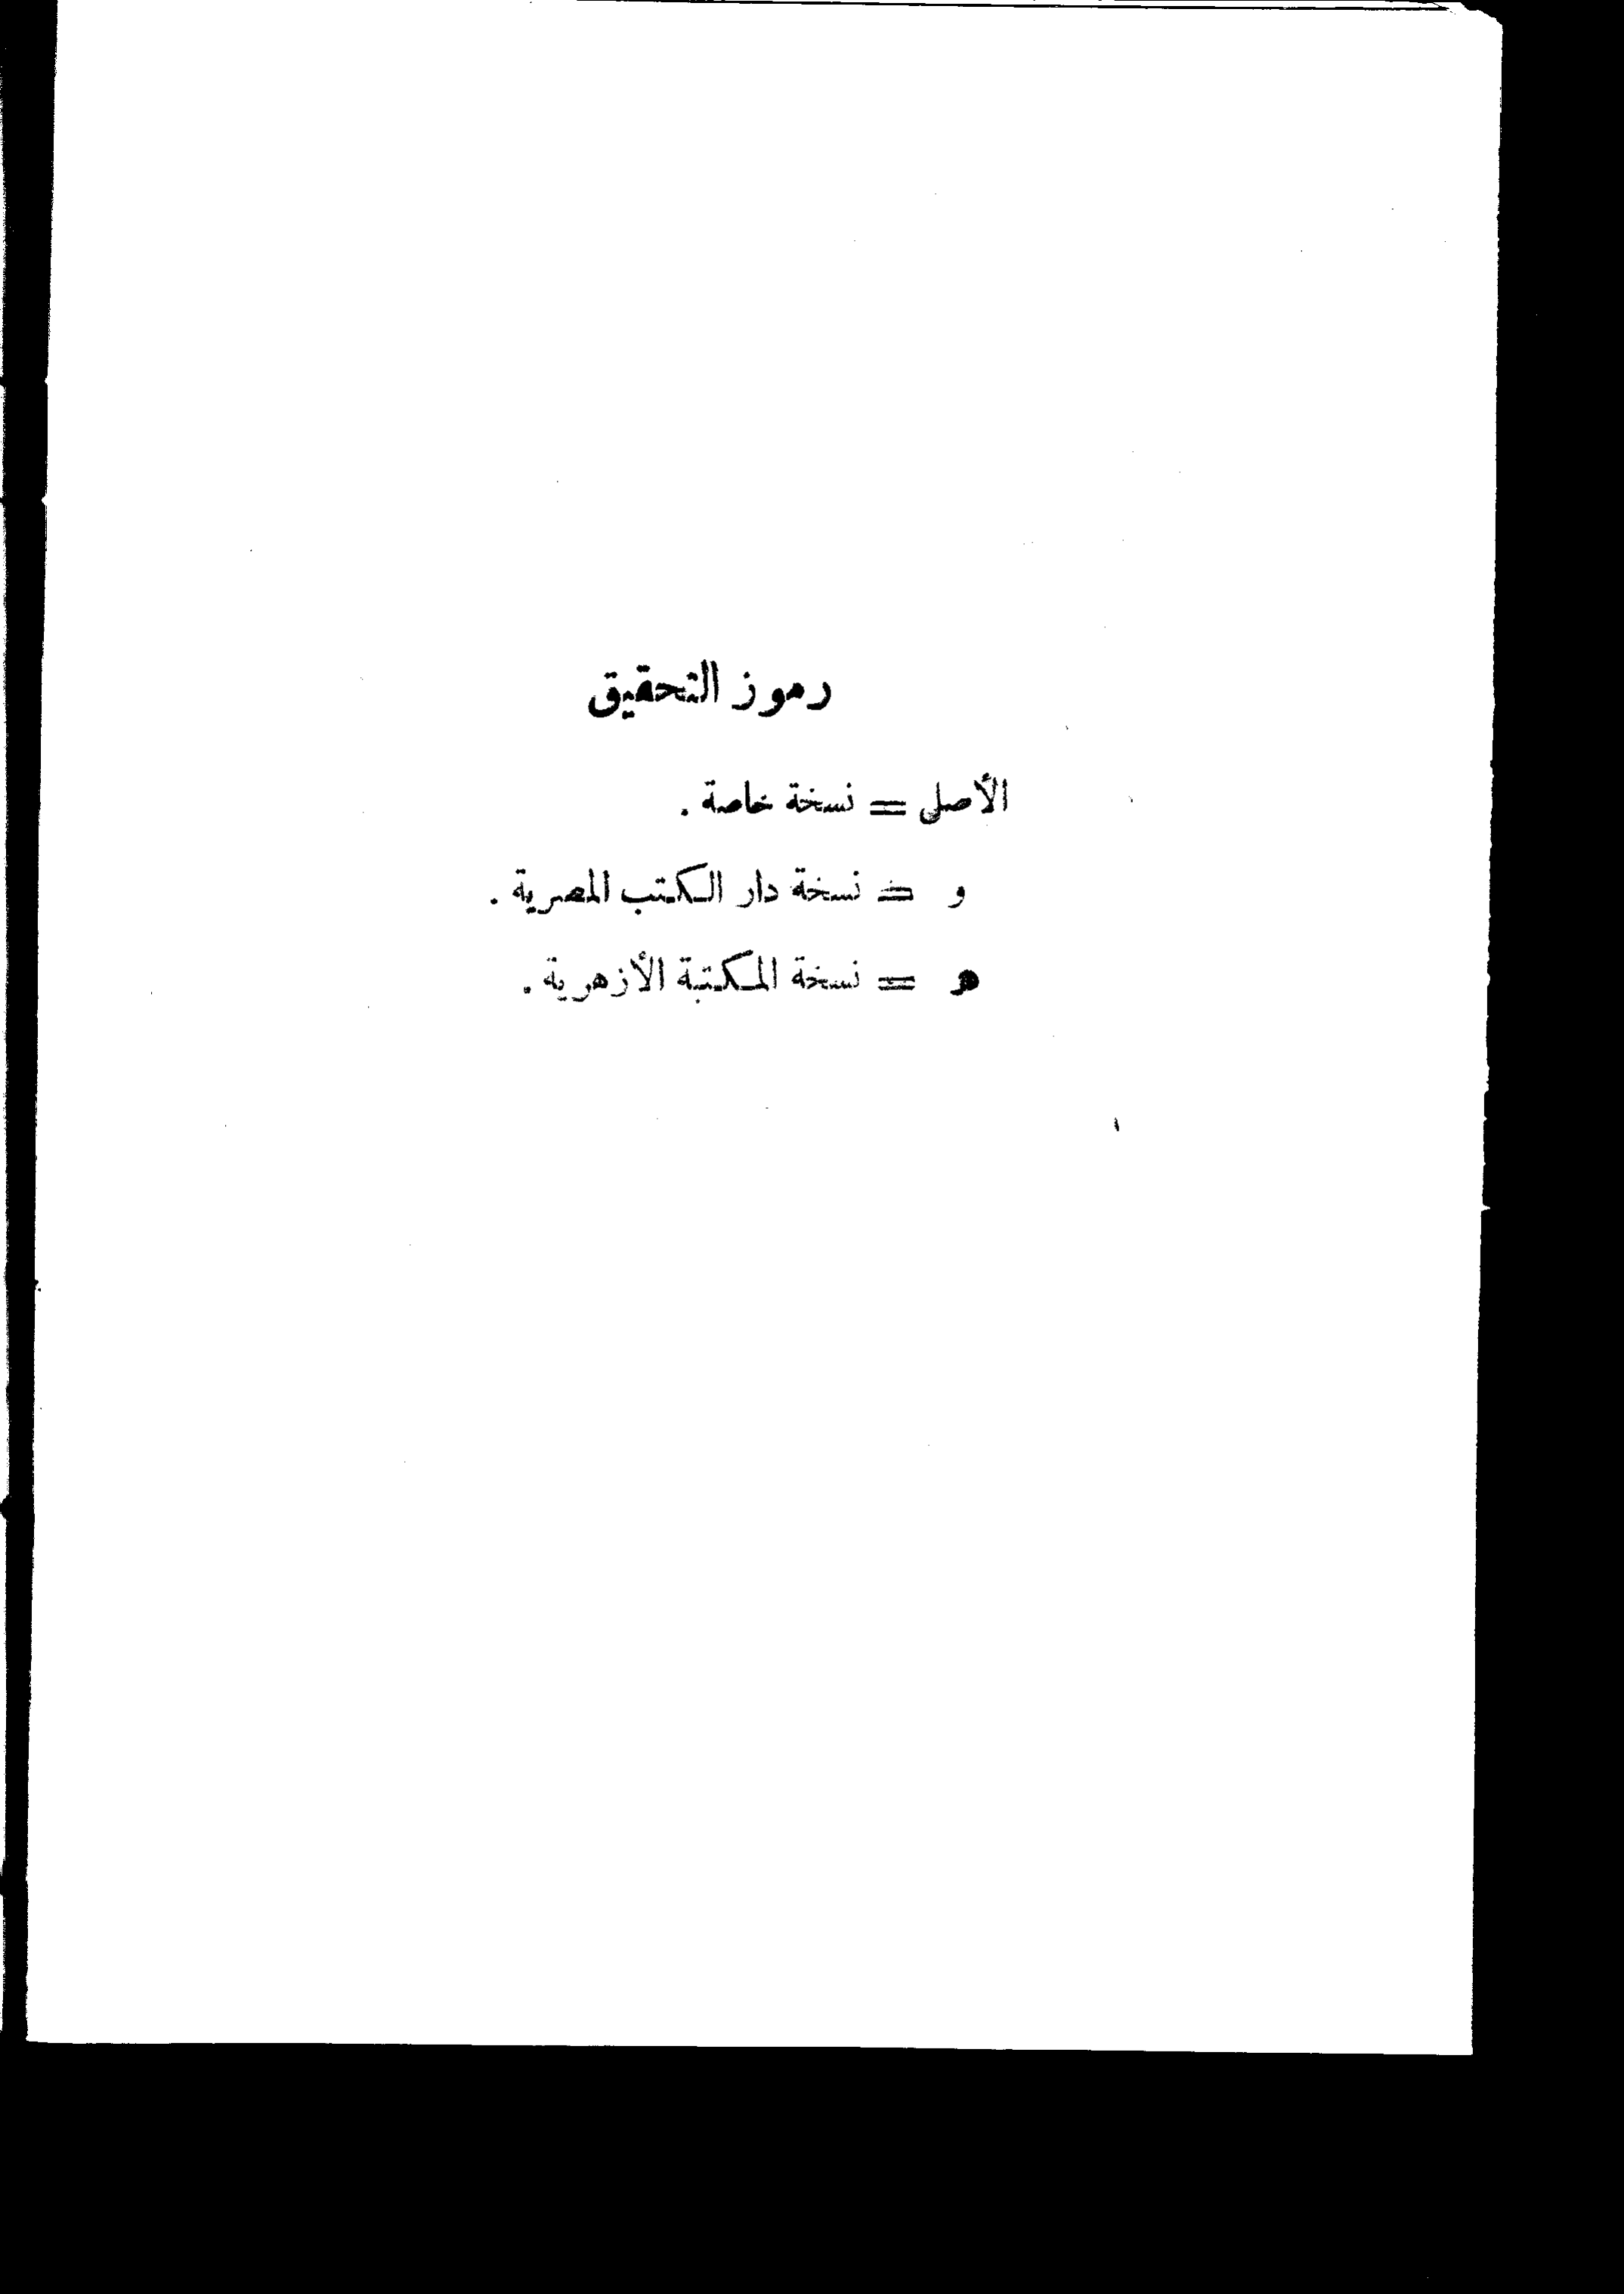 رموز التحقيق
الأصل = نسخة خاصة .
و = نسخة دار الكتب المصرية .
هـ = نسخة المكتبة الأزهرية .